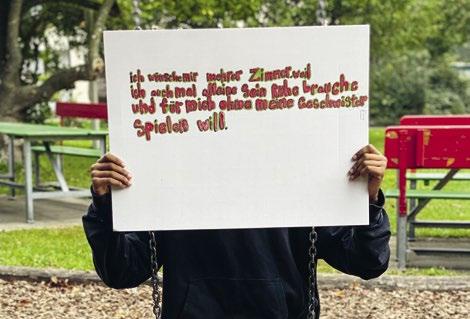 ich wünsche mir mehrer Zimmer, weil
ich auch mal alleine sein Ruhe brauche
und für mich ohne meine Geschwister
Spielen will.